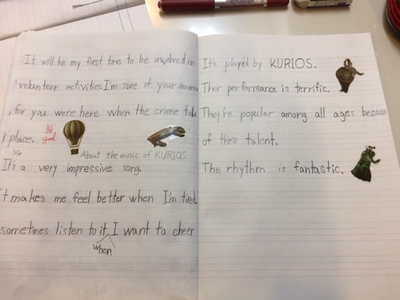 It will be my first time to be involved in
volunteer activities. I'm sure of your
, for you were here when the crime
place.
good
About the music of KURIOS
It's a very impressive song.
It makes me feel better when I'm tired.
sometimes listen to it, I want to cheer
when
It's played by KURIOS.
Their performance is terrific.
They're popular among all ages because
of their talent.
The rhythm is fantastic.